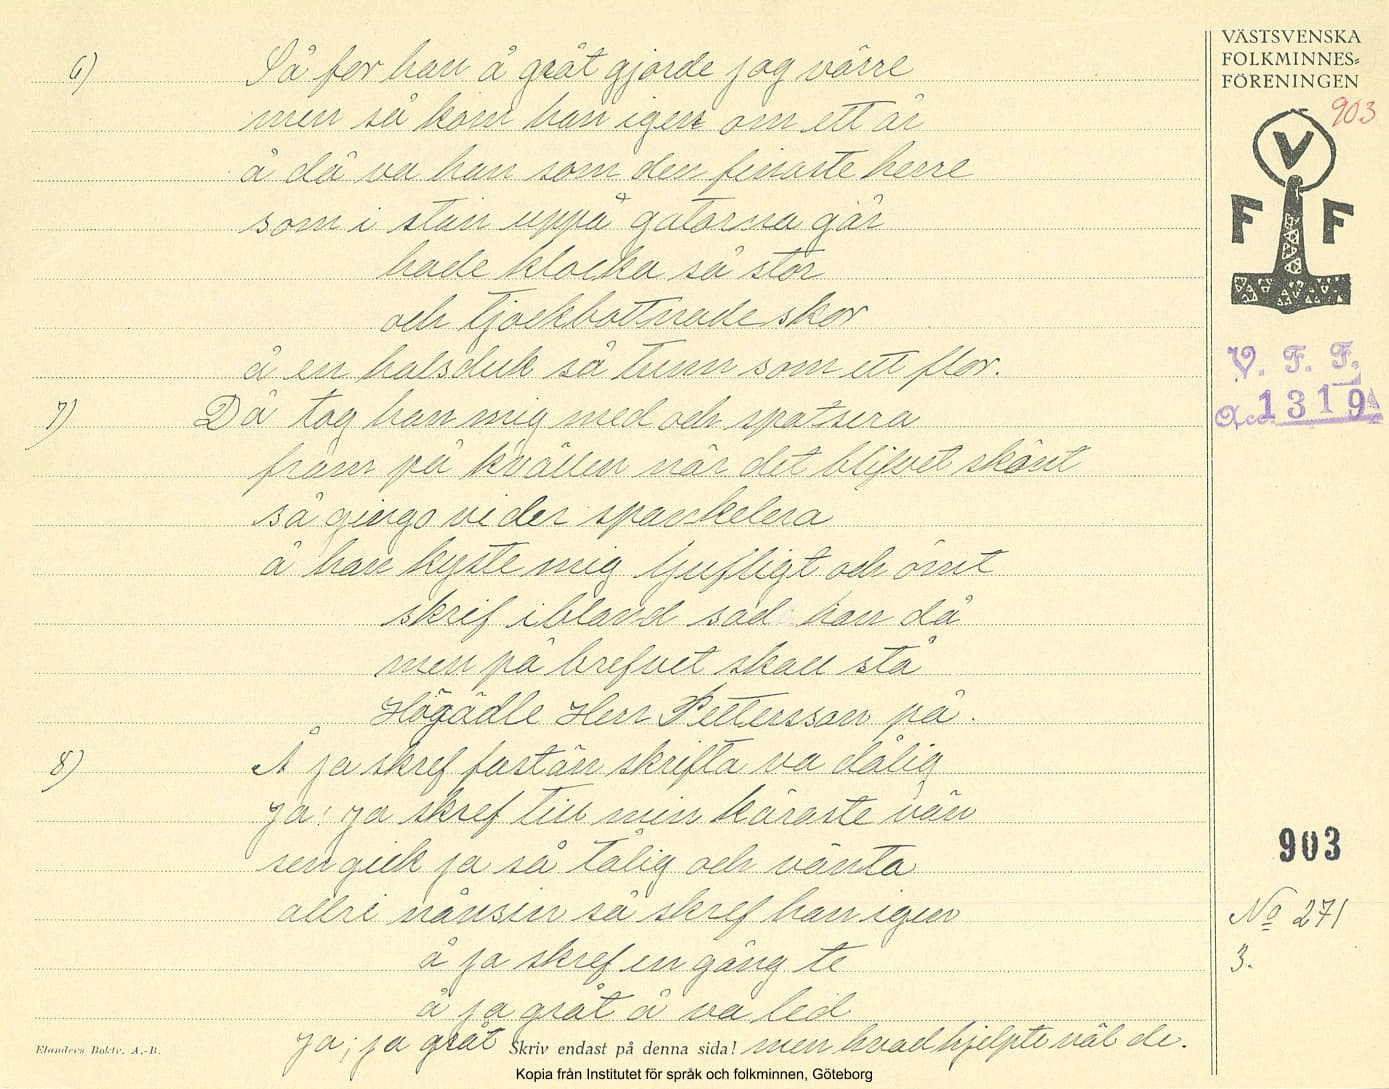 VÄSTSVENSKA
FOLKMINNES=
FÖRENINGEN
903
V
F F
V. F. F.
Acc. 1319
6) Så for han å gråt gjorde jag värre
men så kom han igen om ett år
å då va han som den finaste herre
som i stan uppå gatorna går
hade klocka så stor
och tjockbottnade skor
å en halsduk så tunn som ett flor.
7) Då tog han mig med och spatsera
fram på kvällen när det blifvet skönt
så gingo vi der spankelera
å han kyste mig ljufligt och ömt
skrif ibland sad han då
men på brefvet skall stå
Högädle Herr Pettersson på.
8) Å ja skref fastän skrifta va dålig
ja! ja skref till min käraste vän
sen gick ja så tålig och vänta
allri nånsin så skref han igen
å ja skref en gång te
å ja gråt å va led
ja; ja gråt men hvad hjelpte väl de.
903
No 271
3.
Elanders Boktr. A.-B.
Skriv endast på denna sida!
Kopia från Institutet för språk och folkminnen, Göteborg